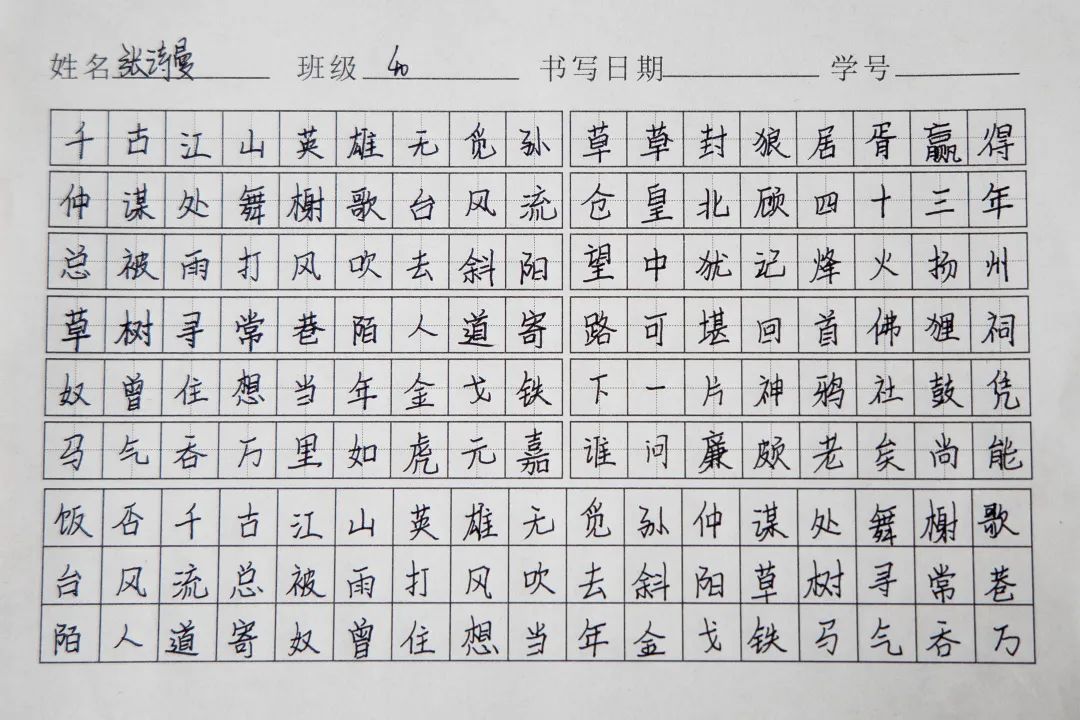 姓名 张诗曼 班级 书写日期 学号
千古江山英雄无觅孙
仲谋处舞榭歌台风流
总被雨打风吹去斜阳
草树寻常巷陌人道寄
奴曾住想当年金戈铁
马气吞万里如虎元嘉
草草封狼居胥赢得
仓皇北顾四十三年
望中犹记烽火扬州
路可堪回首佛狸祠
下一片神鸦社鼓凭
谁问廉颇老矣尚能
饭否千古江山英雄无觅孙仲谋处舞榭歌
台风流总被雨打风吹去斜阳草树寻常巷
陌人道寄奴曾住想当年金戈铁马气吞万